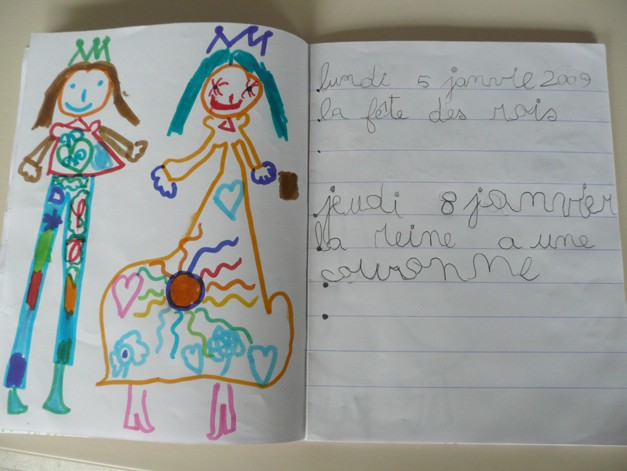 lundi 5 janvie 2009
la fête des rois
jeudi 8 janvier
la reine a une
couronne